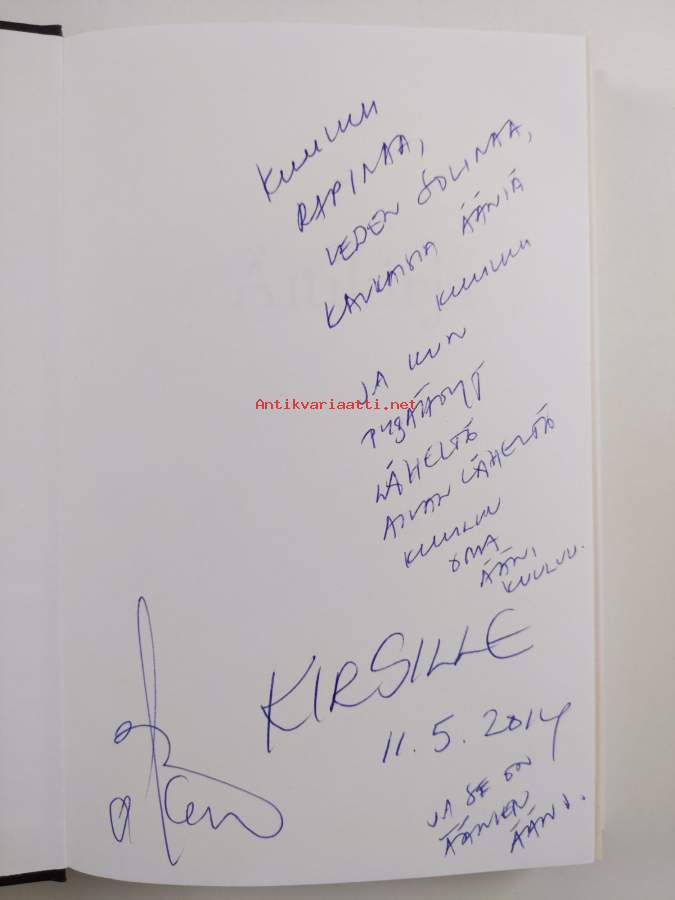 KUULUU
RAPINAA,
VEDEN SOLINAA,
KAUKAISIA ÄÄNIÄ
KUULUU
JA KUN
Antikvariaatti.net
PYSÄHDYT
LÄHELTÄ
AIVAN LÄHELTÄ
KUULUU
OMA
ÄÄNI,
KUULUU.
KIRSILLE
11.5.2014
JA SE ON
ÄÄNIEN
ÄÄNI.